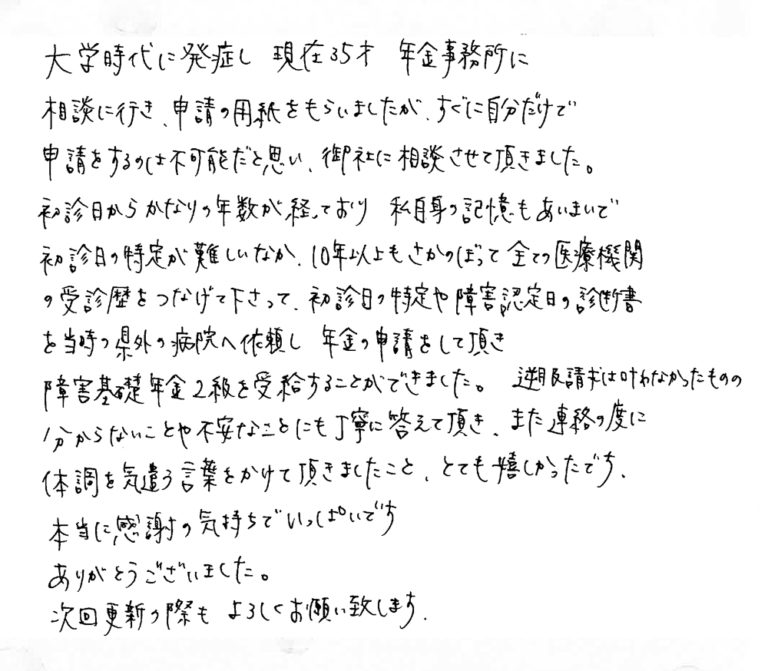 大学時代に発症し 現在35才 年金事務所に
相談に行き、申請の用紙をもらいましたが、すぐに自分だけで
申請をするのは不可能だと思い、御社に相談させて頂きました。
初診日からかなりの年数が経っており 私自身の記憶もあいまいで
初診日の特定が難しいなか、10年以上もさかのぼって全ての医療機関
の受診歴をつなげて下さって、初診日の特定や障害認定日の診断書
を当時の県外の病院へ依頼し 年金の申請をして頂き
障害基礎年金2級を受給することができました。 遡及請求は叶わなかったものの
分からないことや不安なことにも丁寧に答えて頂き、また連絡の度に
体調を気遣う言葉をかけて頂きましたこと、とても嬉しかったです、
本当に感謝の気持ちでいっぱいです
ありがとうございました。
次回更新の際も よろしくお願い致します.